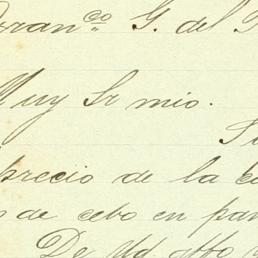 Fran.co G. del
Muy Sr mio.
precio de la
de cebo en pan
De Ud. Affo